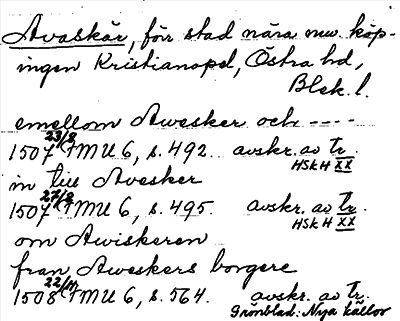 Avaskär, förr stad nära nuv. köp-
ingen Kristianopel, Östra hd,
Blek. l.
emellom Awesker och ----
1507 23/8 FMU 6, s. 492. avskr. av tr.
HSKH XX
in till Avesker
1507 27/8 FMU 6, s. 495. avskr. av tr.
HSKH XX
om Awiskeren
fran Aweskers borgere
1508 22/11 FMU 6, s. 564. avskr. av tr.
Grönblad: Nya källor